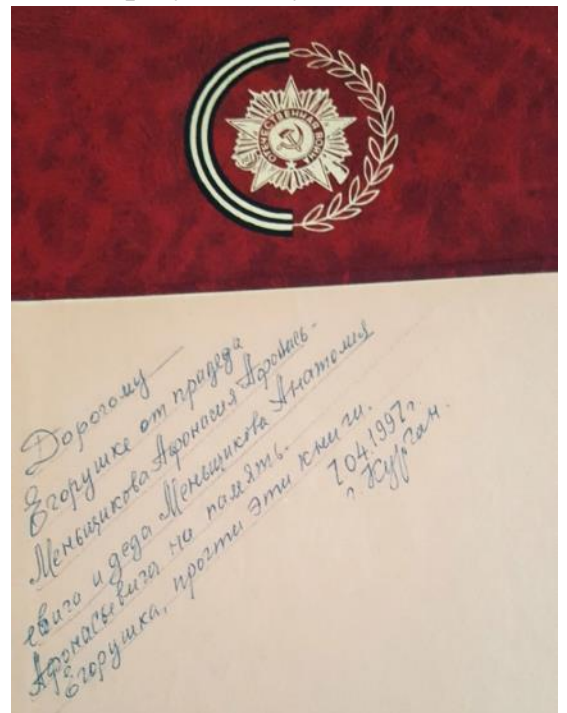 ОТЕЧЕСТВЕННАЯ ВОЙНА
Дорогому
Егорушке от прадеда
Меньщикова Афонасия Афонась-
евича и деда Меньщикова Анатолия
Афонасьевича на память.
Егорушка, прочти эти книги.
7.04.1997г.
г. Курган.